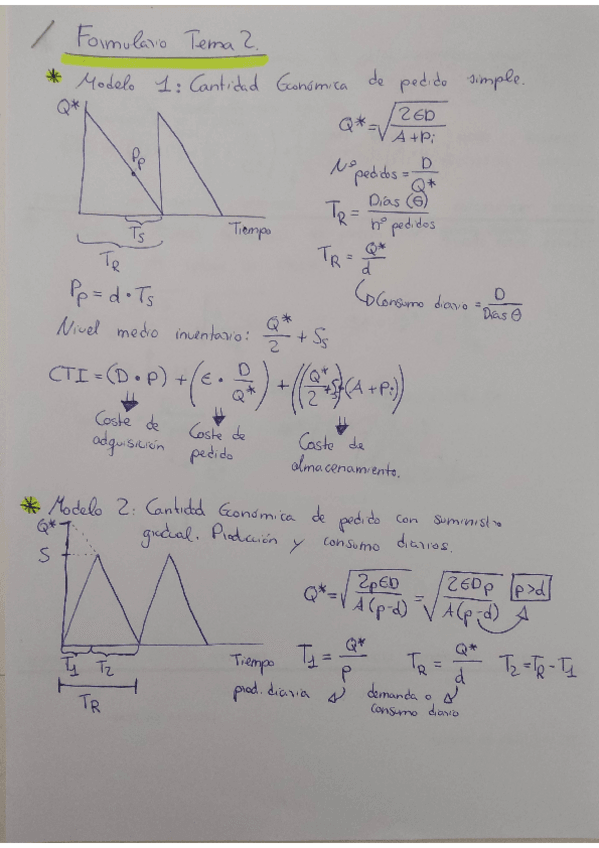 Formulario Tema 2.
* Modelo 1: Cantidad Económica de pedido simple.
Q*
Pp
Ts
Tiempo
TR
Q* = √(2ED / A + Pi)
Nº pedidos = D / Q*
TR = Días (θ) / nº pedidos
TR = Q* / d
↳ Consumo diario = D / Días θ
Pp = d · Ts
Nivel medio inventario: Q* / 2 + Ss
CTI = (D · P) + (E · D / Q*) + ((Q* / 2 + Ss) · (A + Pi))
Coste de adquisición
Coste de pedido
Coste de almacenamiento.
* Modelo 2: Cantidad Económica de pedido con suministro
gradual. Producción y consumo diarios.
Q*
S
T1 T2
Tiempo
TR
Q* = √(2pED / A(p-d)) = √(2EDp / A(p-d)) p>d
T1 = Q* / p
TR = Q* / d
T2 = TR - T1
prod. diaria
demanda o
consumo diario